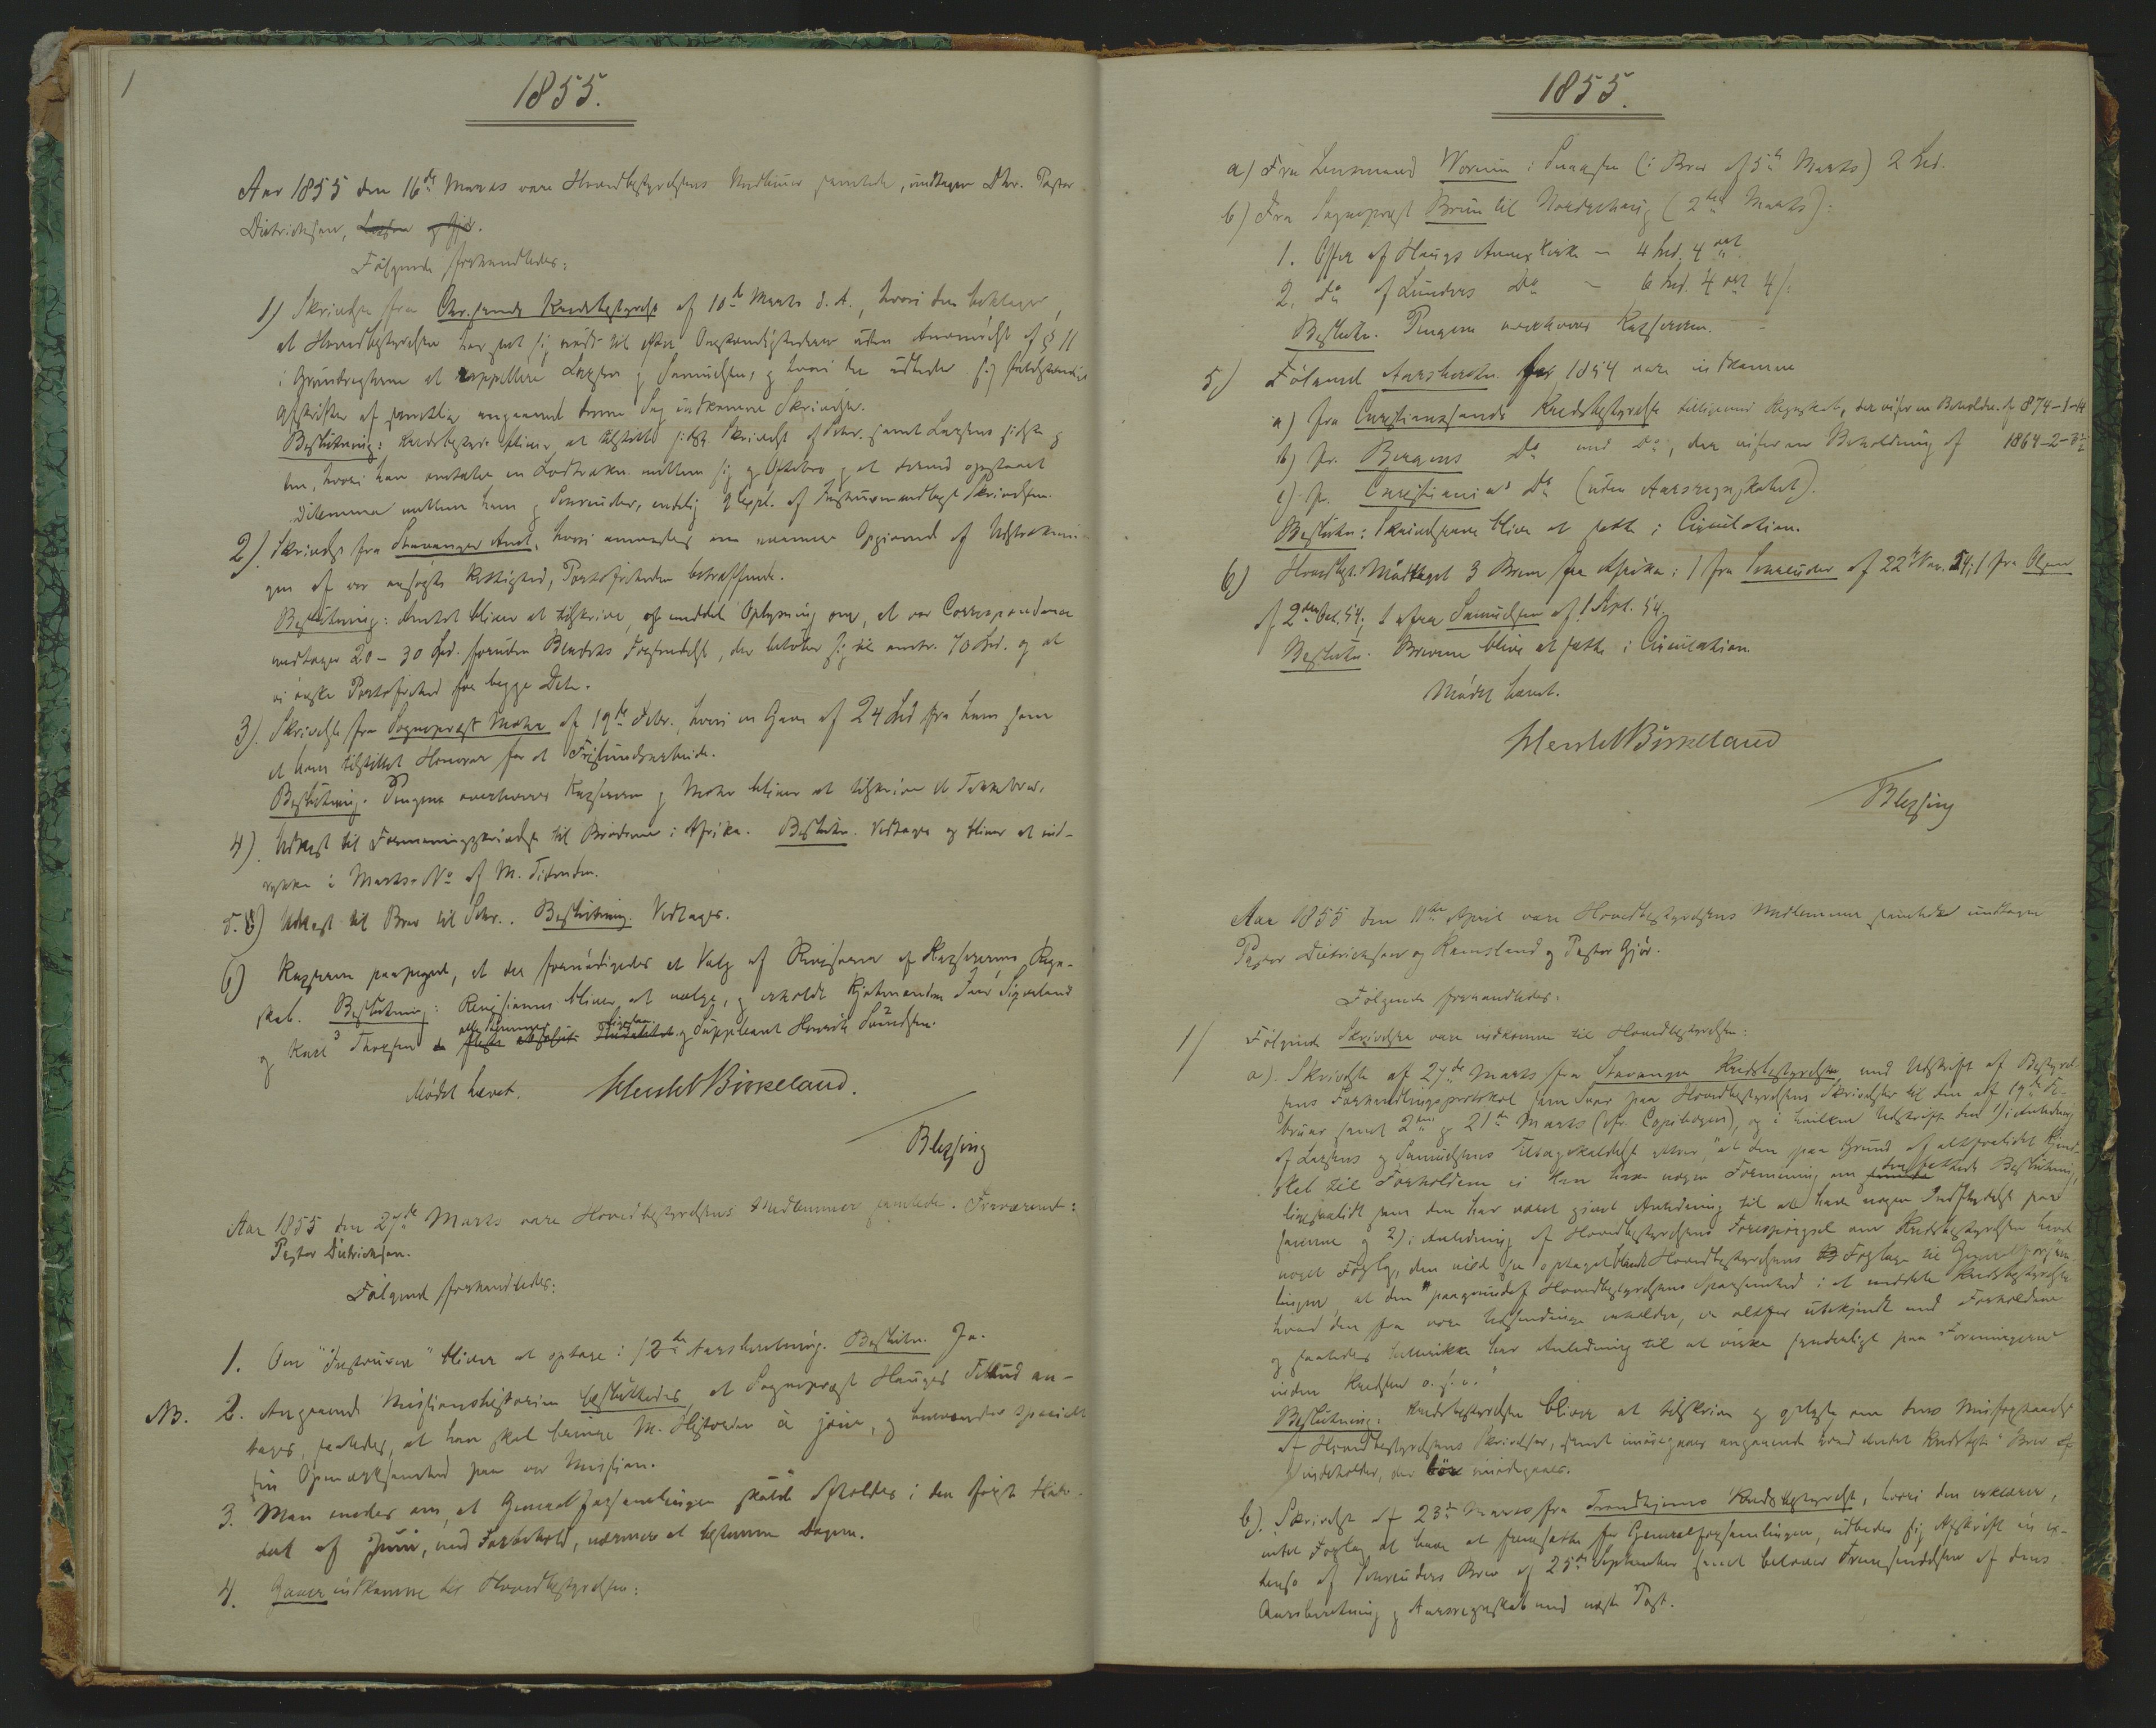 1
1855.
Aar 1855 den 16de Marts vare Hovedbestyrelsens Medlemmer samlede, undtagen DHrr. Pastor
Dietrichson,
Følgende forhandledes:
1) Skrivelse fra Chr.sands Kredsbestyrelse af 10de Marts d. A., hvori den beklager,
at Hovedbestyrelsen har seet sig nødt til efter Omstændighederne uden Anvendelse af § 11
i Grundreglerne at Larsen og Samuelsen, og hvori den udbeder sig fuldstændige
Afskrifter af samtlige angaaende denne Sag indkomne Skrivelser.
Beslutning: Kredsbestyr. bliver at tilstille sidste Skrivelse af Schr. samt Larsens sidste
hvori han omtaler en mellem sig og Oftebro og et derved opstaaet
Dilemma mellem ham og Schreuder, endelig af Skrivelsen.
2). Skrivelse fra Stavanger Amt, hvori anmodes om nærmere Opgivende af Udstræknin-
gen af vor ansøgte Rettighed, Portofriheden betræffende.
Beslutning: Amtet bliver at tilskrive, og meddele Oplysning om, at vor Correspondence
medtager 20 - 30 Spd. foruden Bladets Forsendelse, der beløber sig til omtr. 70 Spd. og at
vi ønske Portofrihed for begge Dele.
3). Skrivelse fra Sognepræst Mohr af 19de Febr., hvori en Gave af 24 Spd fra ham som
et ham tilstillet Honorar for et Fritimesarbeide.
Beslutning. Pengene overleveres Kassereren og Mohr bliver at tilskrive et Takkebrev.
4). Udkast til Formaningsskrivelse til Brødrene i Afrika. Beslutn. Vedtages og bliver at ind-
rykke i Marts-No af M. Tidenden.
5. Udkast til Brev til Schr.. Beslutning. Vedtages.
6) Kassereren paapegede, at der fornødigedes et Valg af Revisorer af Kassererens Regn-
skab. Beslutning: Revisionen bliver at vælge, og erholdt Kjøbmændene Sigvaland
og Karl Thorsen alle Stemmer og Suppleant Henrik Svendsen.
Mødet hævet. Schendel Birkeland.
Blessing
Aar 1855 den 27de Marts vare Hovedbestyrelsens Medlemmer samlede. Fraværende:
Pastor Dietrichson.
Følgende forhandledes:
1. Om "Instruxen" bliver at optage i 12te Aarsberetning. Beslutn. Ja.
NB. 2. Angaaende Missionshistorien besluttedes, at Sognepræst Hauges Tilbud an-
tages, saaledes, at han skal bringe M. Historien à jour, og henvender specielt
sin Opmærksomhed paa vor Mission.
3. Man enedes om, at Generalforsamlingen skulde afholdes i den første Halv-
del af Juni, med Forbehold, nærmere at bestemme Dagen.
4. Gaver indkomne til Hovedbestyrelsen:
1855.
a) Fra Lensmand Worum i Snaasen (i Brev af 5te Marts) 2 Spd.
b) Fra Sognepræst Brun til Norderhaug (2den Marts):
1. Offer af Haugs Annexkirke - 4 Spd. 4 ort
2. Do af Lunders Do - 6 Spd. 4 ort 4 ß
Beslutn. Pengene overleveres Kassereren.
5.) Følgende Aarsberetn. for 1854 vare indkomne
a) fra Christianssands Kredsbestyrelse tilligemed Regnskab, der viser en Beholdn. af 874-1-14
b) fr. Bergens Do med Do, der viser en Beholdning af 1864-2-
c) fr. Christianias Do (uden Aarsregnskabet).
Beslutn: Skrivelserne blive at sætte i Circulation.
6) Hovedbest. Modtaget 3 Breve fra Afrika: 1 fra Schreuder af 22de Nov. 54; 1 fra Olsen
af 2den Oct. 54; 1 fra Samuelsen af 1 Sept. 54.
Beslutn. Brevene blive at sætte i Circulation.
Mødet hævet.
Schendel Birkeland
Blessing
Aar 1855 den 11te April vare Hovedbestyrelsens Medlemmer samlede undtagen
Pastor Dietrichson og Kamsland og Pastor Gjør.
Følgende forhandledes:
1) Følgende Skrivelser vare indkomne til Hovedbestyrelsen:
a). Skrivelse af 27de Marts fra Stavanger Kredsbestyrelse, med Udskrift af Bestyrel-
sens Forhandlingsprotokol som Svar paa Hovedbestyrelsens Skrivelser til den af 19de Fe-
bruar samt 2den og 21de Marts (cfr. Copibogen), og i hvilken Udskrift den 1) i Anledning
af Larsens og Samuelsens Tilbagekaldelse yttrer, "at den paa Grund af altforlidet Kjend-
skab til Forholdene ei kan have nogen Formening om den fattede Beslutning,
ligesaalidt som den har været givet Anledning til at have nogen Indflydelse paa
samme og 2) i Anledning af Hovedbestyrelsens Forespørgsel om Kredsbestyrelsen havde
noget Forslag, den vilde have optaget blandt Hovedbestyrelsens Forslage til Generalforsam-
lingen, at den "paagrund af Hovedbestyrelsens Sparsomhed i at meddele Kredsbestyrelsen
hvad den fra vore Udsendinge erholder, er altfor ubekjendt med Forholdene
og saaledes heller ikke har Anledning til at virke synderligt paa Foreningerne
inden Kredsen o. s. v."
Beslutning: Kredsbestyrelsen bliver at tilskrive og oplyse om dens Misforstaaelse
af Hovedbestyrelsens Skrivelser, samt imødegaaes angaaende hvad andet Kredsbest.s Brev af
indeholder, der bør imødegaaes.
b). Skrivelse af 23de Marts fra Trondhjems Kredsbestyrelse, hvori den erklærer,
intet Forslag at have at fremsætte for Generalforsamlingen, udbeder sig Afskrift in ex-
tenso af Schreuders Brev af 25de September samt belover Fremsendelse af dens
Aarsberetning og Aarsregnskab med næste Post.